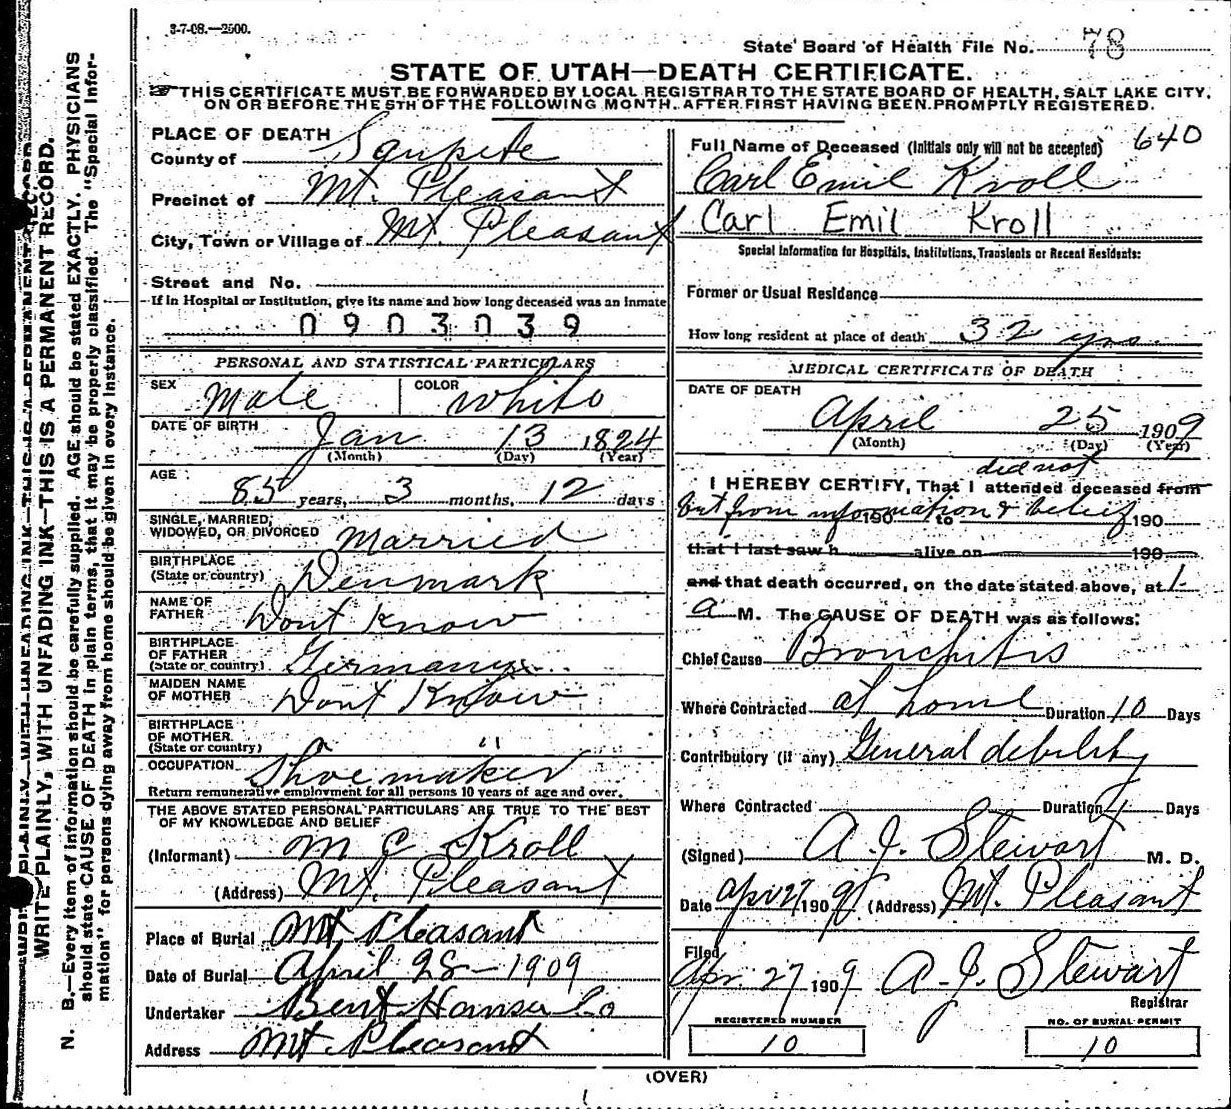 3-7-08.—2500.
State Board of Health File No. 78
STATE OF UTAH—DEATH CERTIFICATE.
☞THIS CERTIFICATE MUST BE FORWARDED BY LOCAL REGISTRAR TO THE STATE BOARD OF HEALTH, SALT LAKE CITY,
ON OR BEFORE THE 5TH OF THE FOLLOWING MONTH, AFTER FIRST HAVING BEEN PROMPTLY REGISTERED.
WRITE PLAINLY, WITH UNFADING INK—THIS IS A PERMANENT RECORD.
N. B.—Every item of information should be carefully supplied. AGE should be stated EXACTLY. PHYSICIANS
should state CAUSE OF DEATH in plain terms, that it may be properly classified. The "Special Infor-
mation" for persons dying away from home should be given in every instance.
PLACE OF DEATH
County of Sanpete
Precinct of Mt. Pleasant
City, Town or Village of Mt. Pleasant
Street and No.
If in Hospital or Institution, give its name and how long deceased was an inmate
0903039
PERSONAL AND STATISTICAL PARTICULARS
SEX Male COLOR White
DATE OF BIRTH Jan 13 1824
(Month) (Day) (Year)
AGE 85 years, 3 months, 12 days
SINGLE, MARRIED,
WIDOWED, OR DIVORCED Married
BIRTHPLACE
(State or country) Denmark
NAME OF
FATHER Dont Know
BIRTHPLACE
OF FATHER
(State or country) Germany
MAIDEN NAME
OF MOTHER Dont Know
BIRTHPLACE
OF MOTHER
(State or country) " "
OCCUPATION Shoemaker
Return remunerative employment for all persons 10 years of age and over.
THE ABOVE STATED PERSONAL PARTICULARS ARE TRUE TO THE BEST
OF MY KNOWLEDGE AND BELIEF
(Informant) M C Kroll
(Address) Mt. Pleasant
Place of Burial Mt Pleasant
Date of Burial April 28—1909
Undertaker Bent Hansen Co
Address Mt. Pleasant
640
Full Name of Deceased (Initials only will not be accepted)
Carl Emil Kroll
Carl Emil Kroll
Special Information for Hospitals, Institutions, Transients or Recent Residents:
Former or Usual Residence
How long resident at place of death 32 yrs
MEDICAL CERTIFICATE OF DEATH
DATE OF DEATH
April 25 1909
(Month) (Day) (Year)
did not
I HEREBY CERTIFY, That I attended deceased from
but from information & belief 190 to 190
that I last saw h alive on 190
and that death occurred, on the date stated above, at 1-
a M. The CAUSE OF DEATH was as follows:
Chief Cause Bronchitis
Where Contracted at home Duration 10 Days
Contributory (if any) General debility
Where Contracted Duration Days
(Signed) A. J. Stewart M. D.
Date Apr 27 1909 (Address) Mt. Pleasant
Filed
Apr. 27 1909 A. J. Stewart
Registrar
REGISTERED NUMBER
10
NO. OF BURIAL PERMIT
10
(OVER)